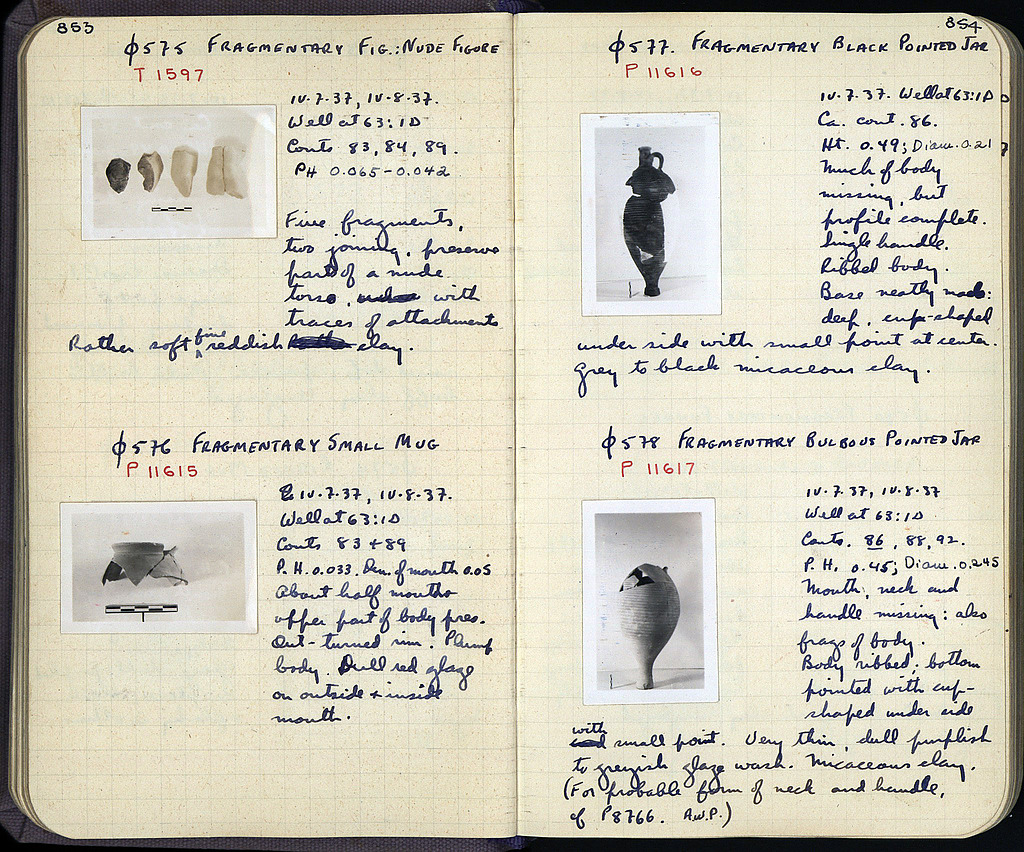 853
φ575 FRAGMENTARY FIG.: NUDE FIGURE
T 1597
IV.7.37, IV.8.37.
Well at 63:ID
Conts 83, 84, 89.
PH 0.065-0.042
Five fragments,
two joining, preserve
part of a nude
torso, with
traces of attachments
Rather soft fine reddish clay.
φ576 FRAGMENTARY SMALL MUG
P 11615
IV.7.37, IV.8.37.
Well at 63:ID
Conts 83 + 89
P.H. 0.033. Dm. of mouth 0.05
About half mouth
upper part of body pres.
Out-turned rim. Plump
body. Dull red glaze
on outside + inside
mouth.
854
φ577. FRAGMENTARY BLACK POINTED JAR
P 11616
IV.7.37. Well at 63:ID
Ca. cont. 86.
Ht. 0.49; Diam. 0.21
Much of body
missing, but
profile complete.
Single handle.
Ribbed body.
Base neatly made:
deep, cup-shaped
under side with small point at center.
Grey to black micaceous clay.
φ578 FRAGMENTARY BULBOUS POINTED JAR
P 11617
IV.7.37, IV.8.37
Well at 63:ID
Conts. 86, 88, 92.
P.H. 0.45; Diam. 0.245
Mouth, neck and
handle missing: also
frags of body.
Body ribbed; bottom
pointed with cup-
shaped under side
with small point. Very thin, dull purplish
to greyish glaze wash. Micaceous clay.
(For probable form of neck and handle,
cf P8766. A.W.P.)